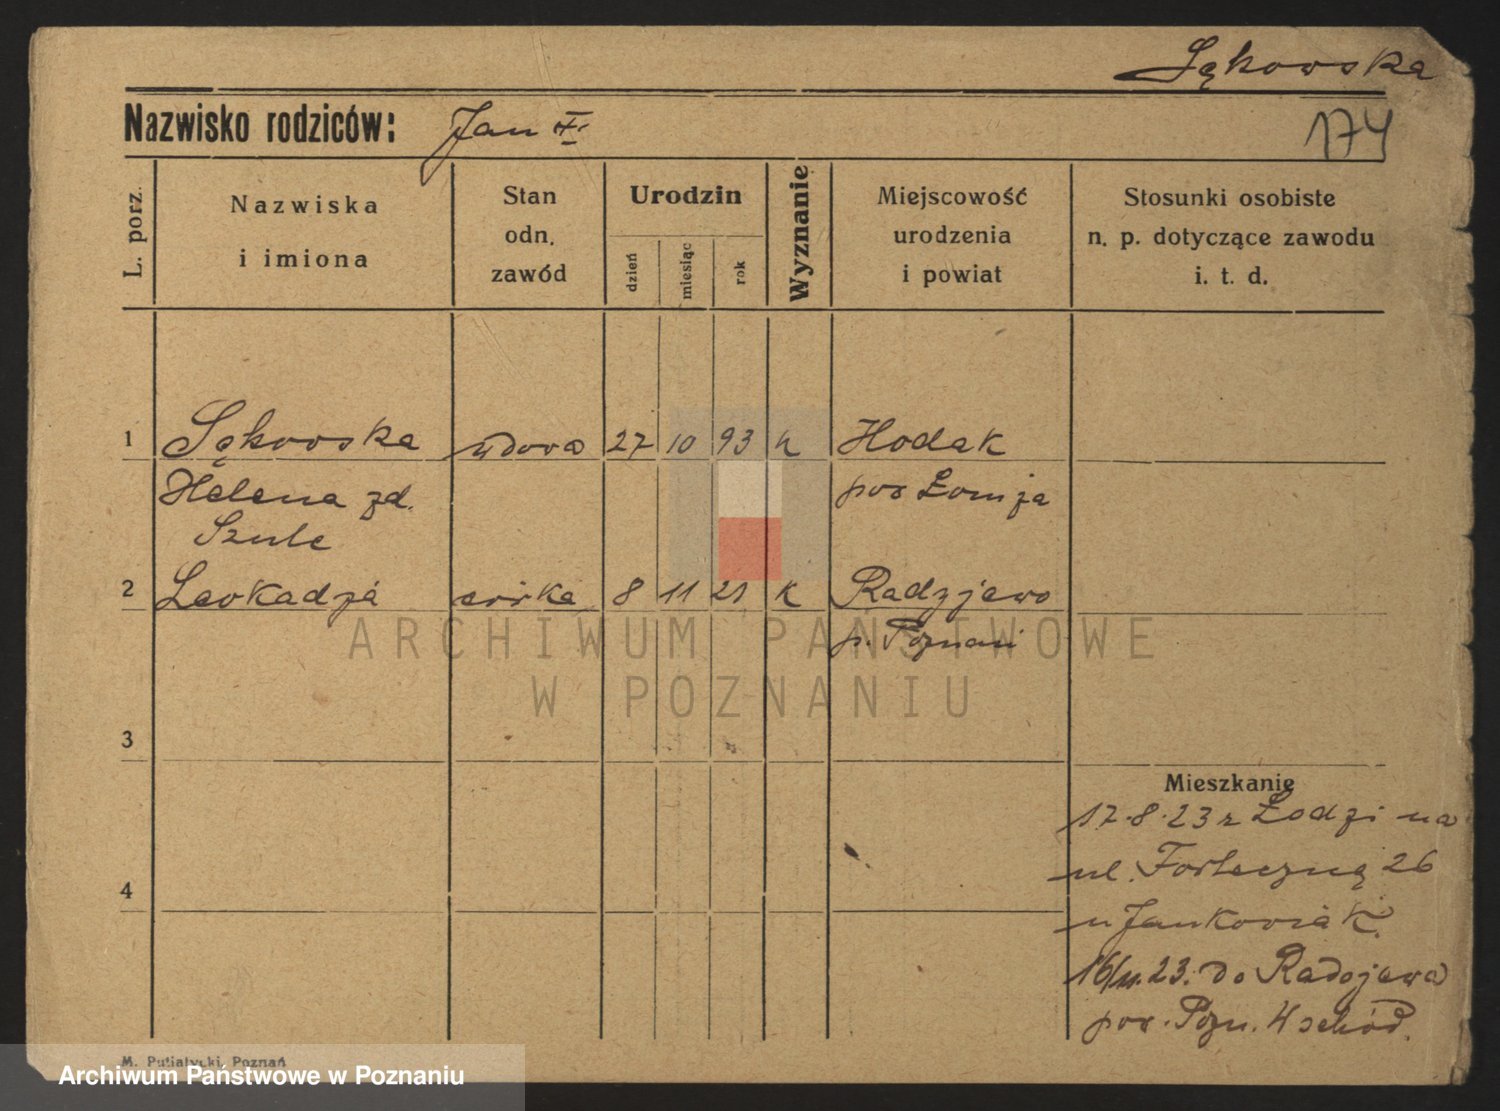 Sąkowska
Nazwisko rodziców: Jan
174
L. porz. Nazwiska i imiona Stan odn. zawód Urodzin dzień miesiąc rok Wyznanie Miejscowość urodzenia i powiat Stosunki osobiste n. p. dotyczące zawodu i. t. d.
1 Sąkowska wdowa 27 10 93 k Hodak
Helena zd. pow Łomja
Szulc
2 Leokadja córka 8 11 21 k Radzjewo
p. Poznań
ARCHIWUM PAŃSTWOWE
W POZNANIU
3
Mieszkanie
17.8.23 z Łodzi na
4 ul. Forteczną 26
u Jankowiak.
16/11.23. do Radojewa
pow. Pozn. Wschód.
M. Putiatycki, Poznań
Archiwum Państwowe w Poznaniu